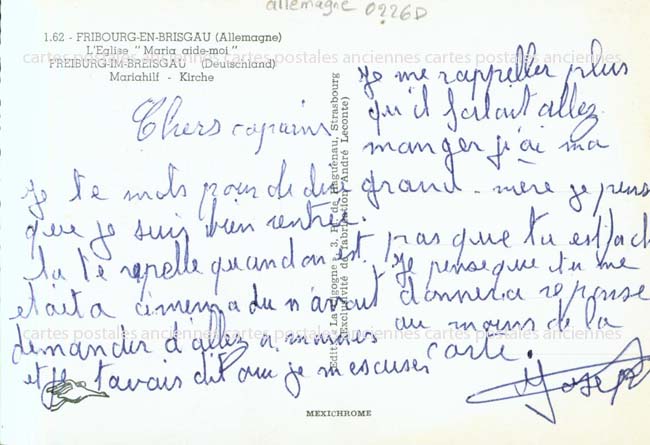 allemagne 0226D
1.62 - FRIBOURG-EN-BRISGAU (Allemagne)
L'Eglise " Maria aide-moi "
cartes postales anciennes cartes postales anciennes cartes postales anciennes
FREIBURG-IM-BREISGAU (Deutschland)
Mariahilf - Kirche
Chers copains
je te mots pour di dire
que je suis bien rentrée.
tu te rapelle quand on est
était a cimema du n avait
demander a allez a
et je t'avais dit que je m'escuser
je me rappeller plus
qu'il falait allez
manger j'ai ma
grand-mère je pense
pas que tu est fach
je pense que tu me
donnera reponse
au moins de la
carte.
Joseph
Edit. La Cigogne, 3, R. de Haguenau, Strasbourg
(Exclusivité de fabrication André Leconte)
cartes postales anciennes cartes postales anciennes cartes postales anciennes
MEXICHROME